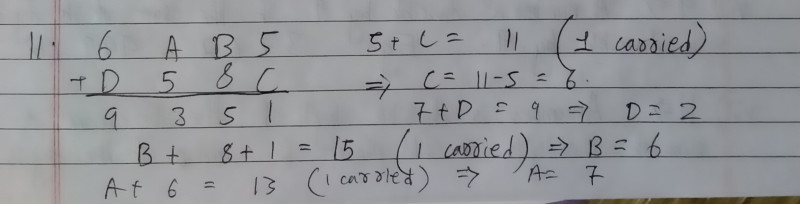 11. 6 A B 5 5 + C = 11 (1 carried)
+ D 5 8 C ⇒ C = 11-5 = 6.
9 3 5 1 7+D = 9 ⇒ D = 2
B + 8+1 = 15 (1 carried) ⇒ B = 6
A + 6 = 13 (1 carried) ⇒ A = 7